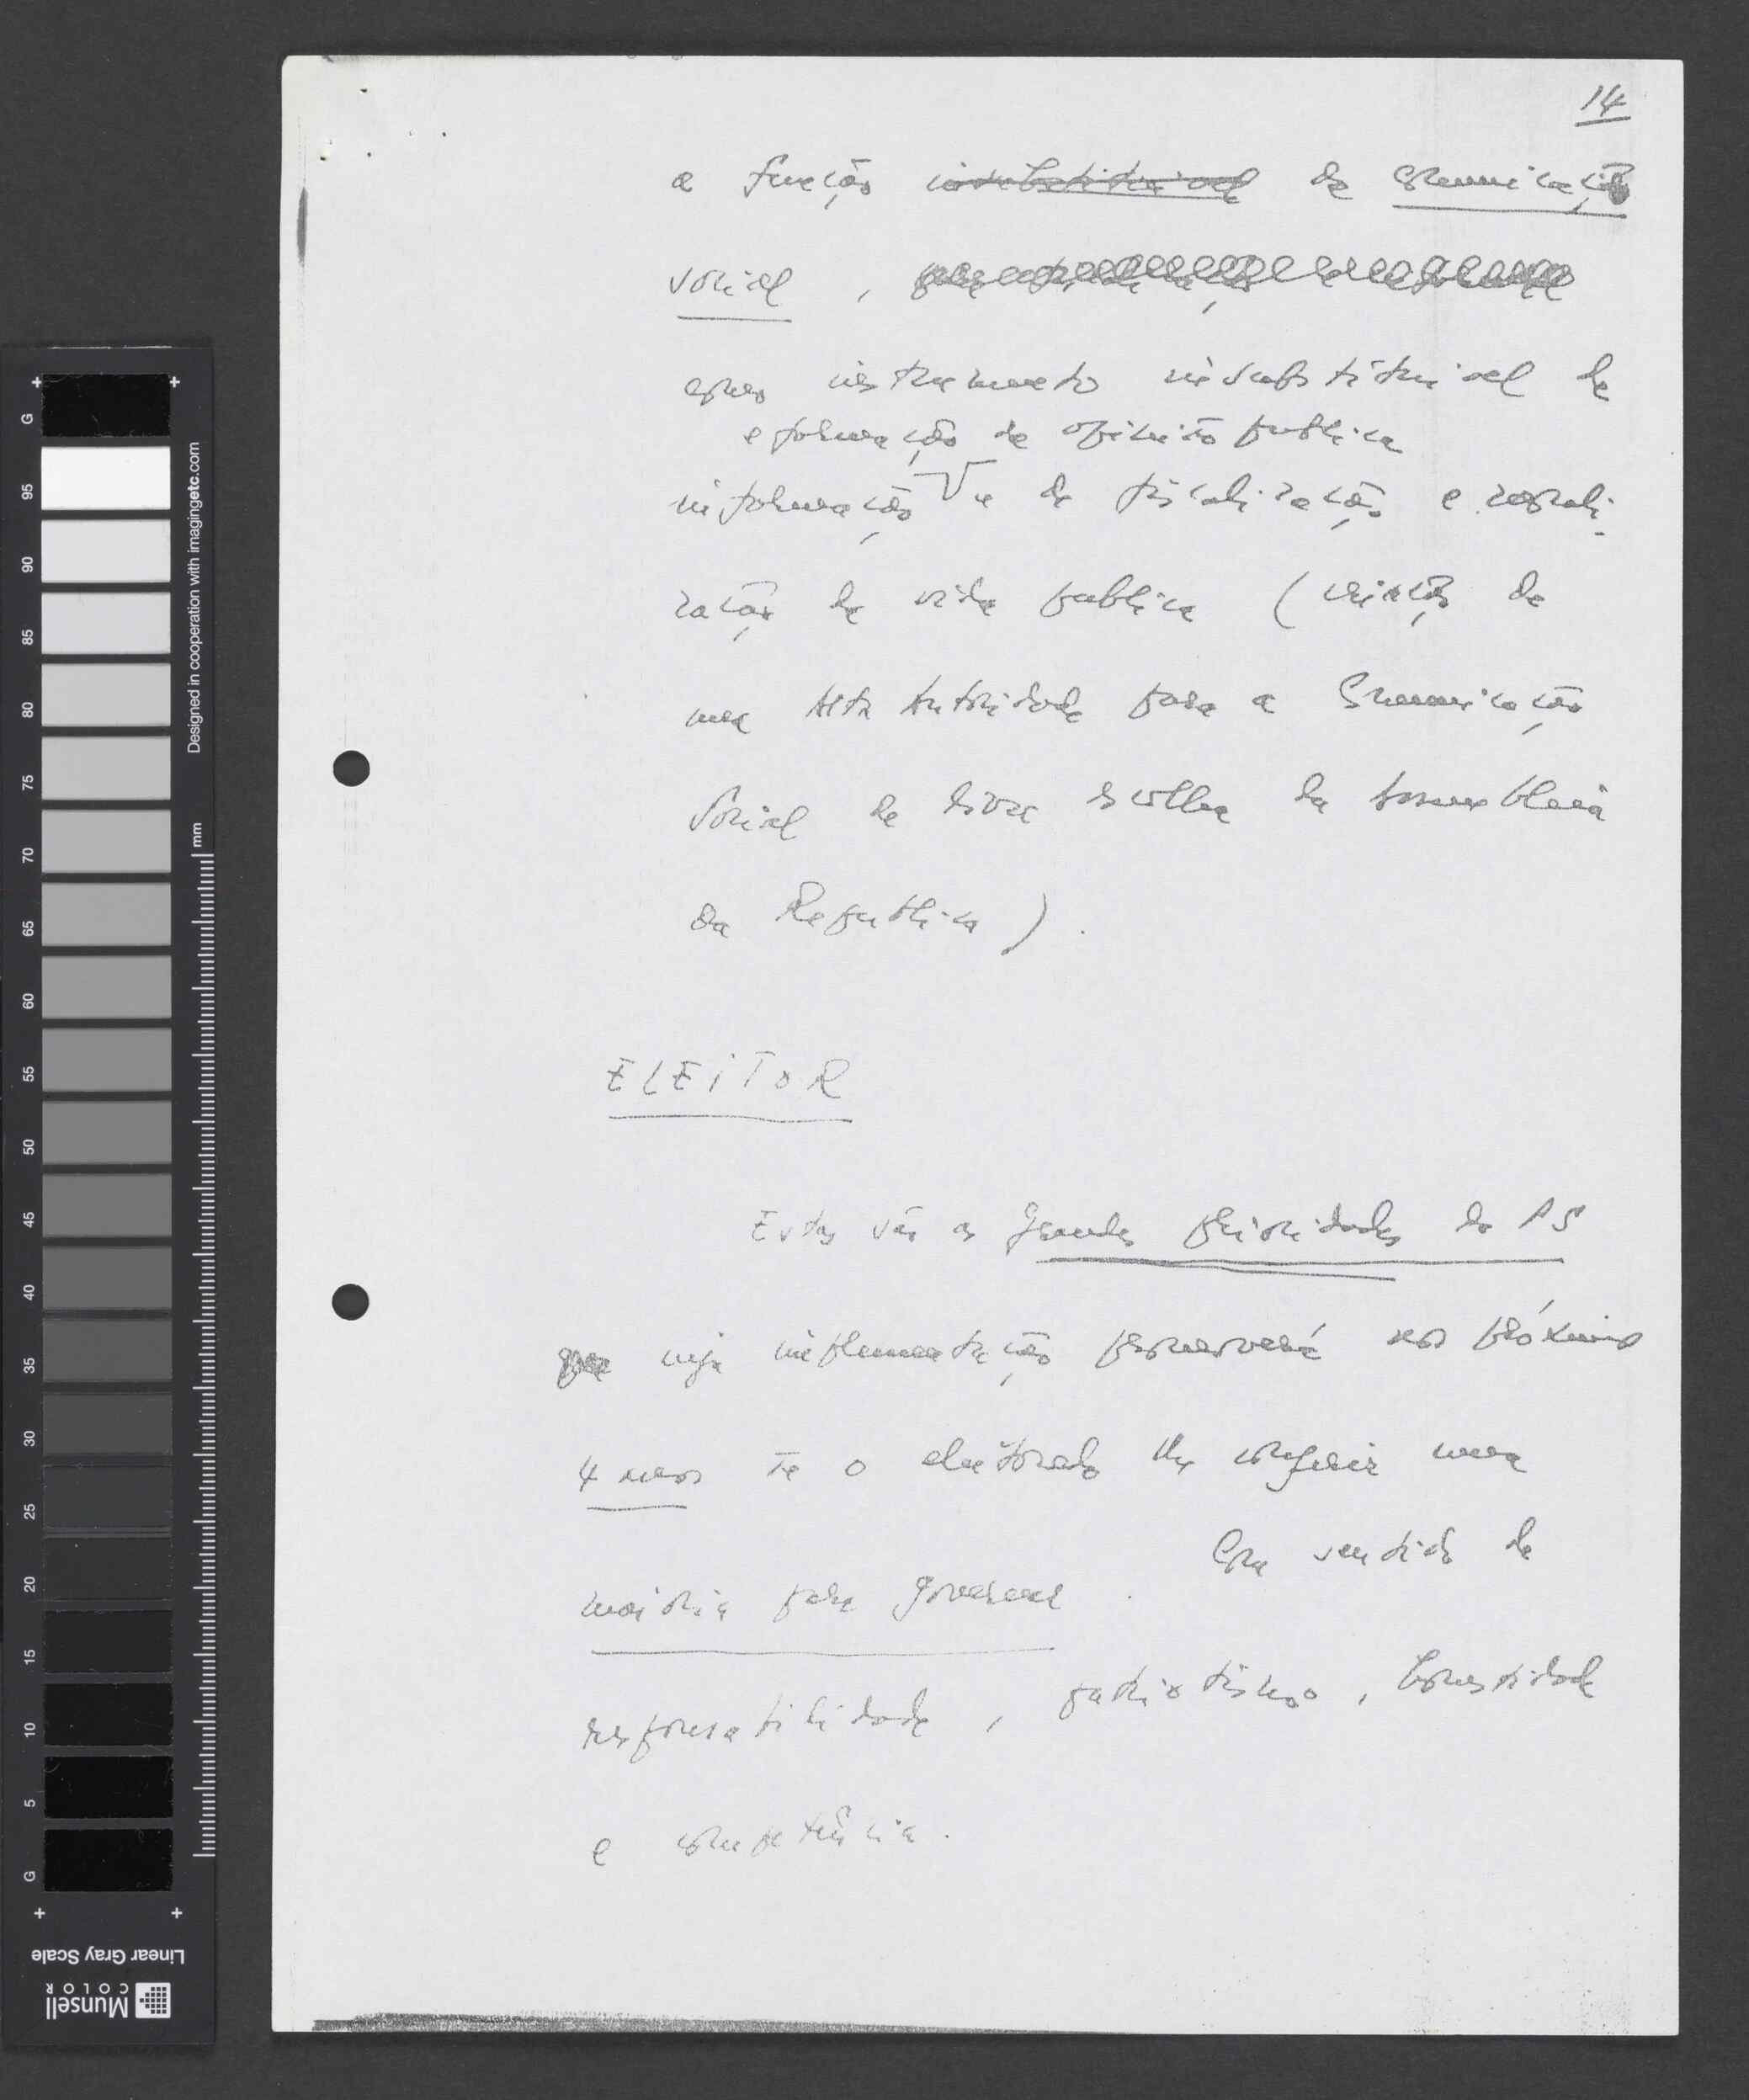 14
a função insubstituivel da comunicação
social,
como instrumento insubstituivel de
e formação da opinião publica
informação e de fiscalização e morali-
zação da vida publica (criação de
uma Alta Autoridade para a Comunicação
Social de livre escolha da Assembleia
da Republica).
ELEITOR
Estas são as grandes prioridades do PS
cuja implementação promoverá nos próximos
4 anos se o eleitorado lhe conferir uma
maioria para governar. Com sentido de
responsabilidade, patriotismo, honestidade
e competência.
G
95
90
85
80
75
70
65
60
55
50
45
40
35
30
25
20
15
10
5
G
mm
Designed in cooperation with imagingetc.com
Linear Gray Scale
Munsell
COLOR